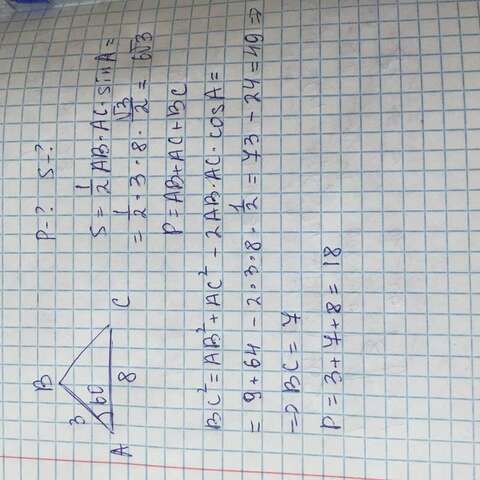 B
3
60
A
8
C
P-? S-?
S = 1/2 AB·AC·sinA =
= 1/2 · 3 · 8 · √3/2 = 6√3
P = AB+AC+BC
BC² = AB² + AC² - 2AB·AC·cosA =
= 9 + 64 - 2·3·8· 1/2 = 73 - 24 = 49 ⇒
⇒ BC = 7
P = 3+7+8 = 18